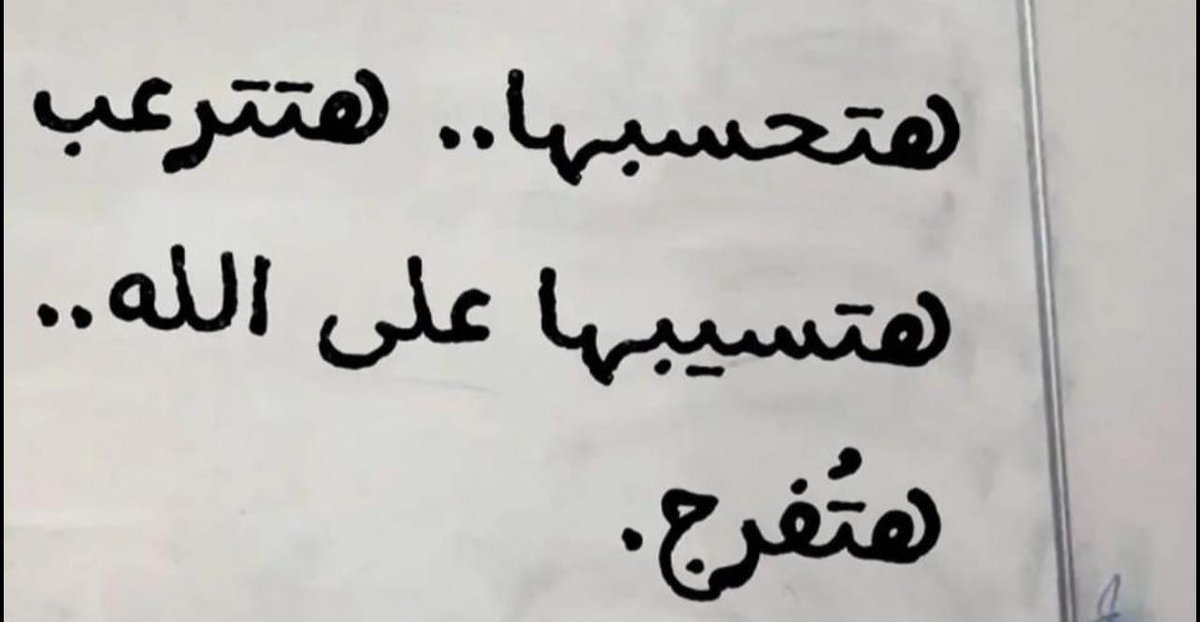 هتحسبها.. هتترعب
هتسيبها على الله..
هتُفرج.